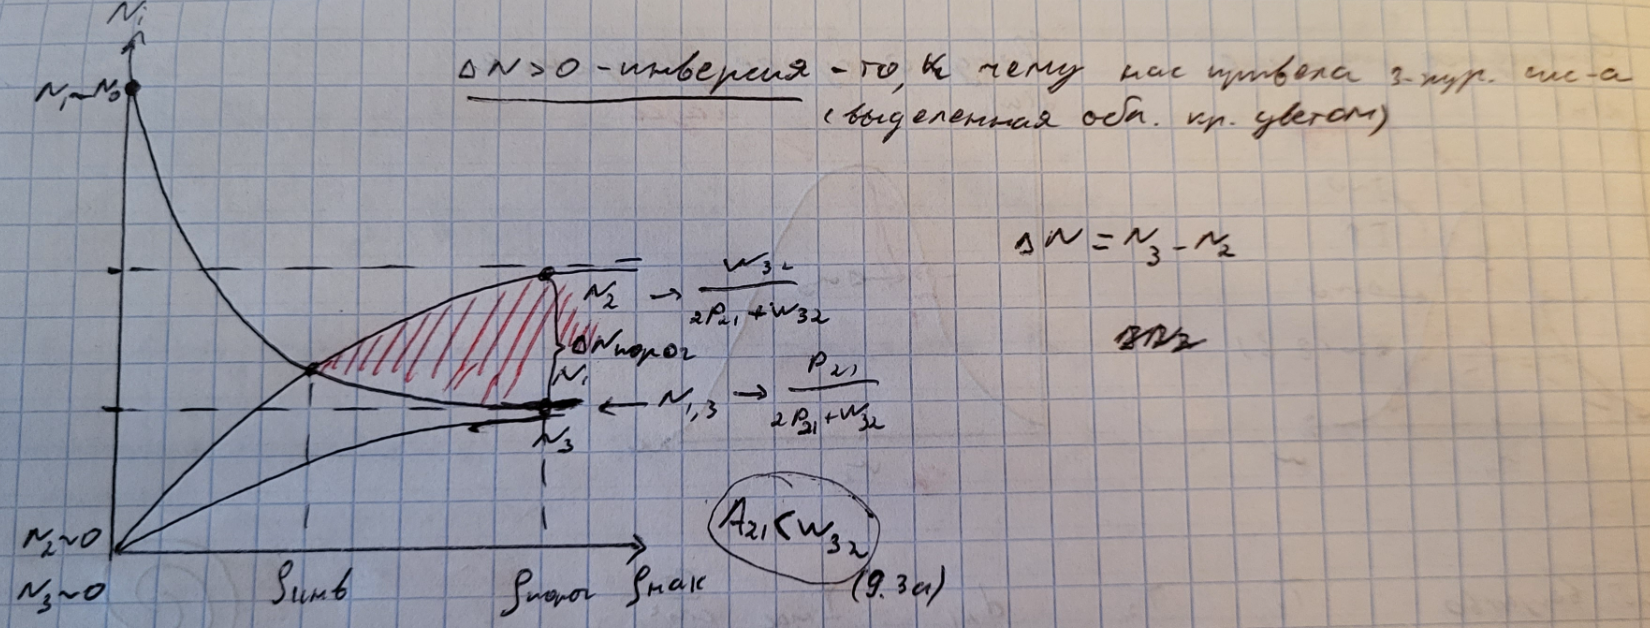 N_i
N_1 ~ N_0
ΔN > 0 - инверсия - то, к чему нас привела 3-хур. сис-а
(выделенная обл. кр. цветом)
ΔN = N_3 - N_2
N_2 → W_32 / (2P_21 + W_32)
ΔN порог
N_1
N_1,3 → P_21 / (2P_21 + W_32)
N_3
A_21 < W_32
(9.3а)
N_2 ~ 0
N_3 ~ 0
ρ инв ρ порог ρ нак